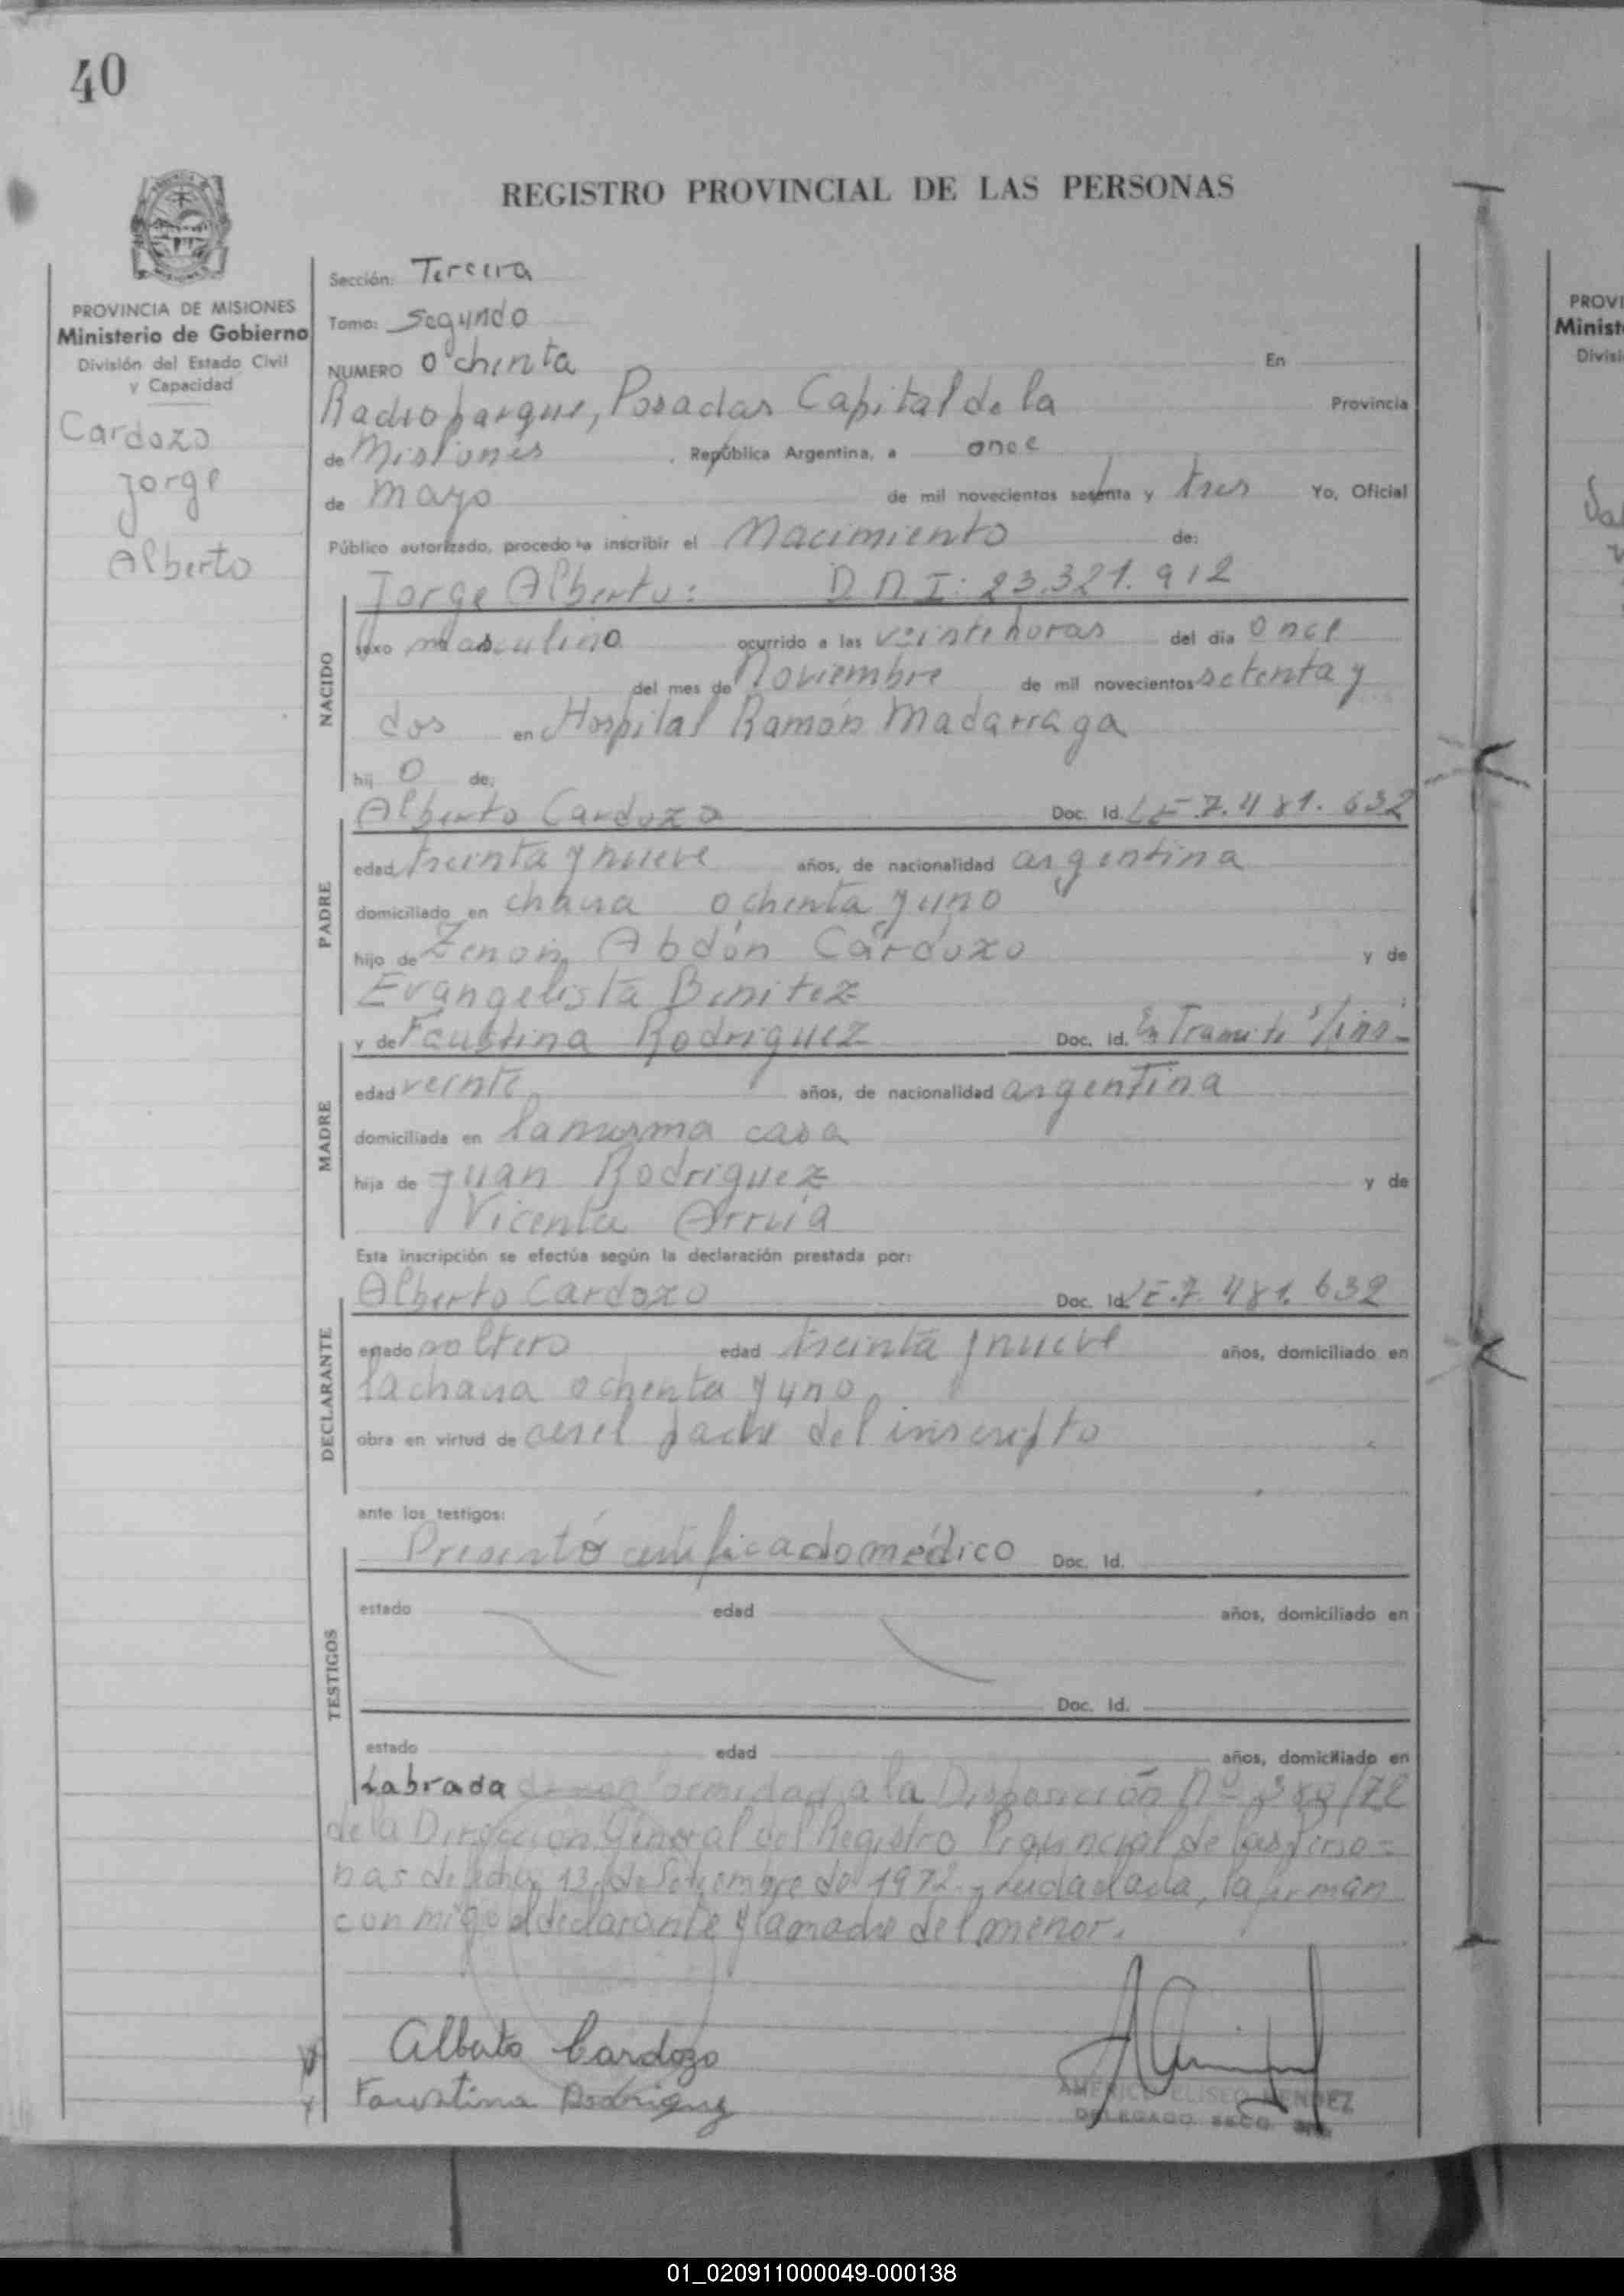 40
REGISTRO PROVINCIAL DE LAS PERSONAS
PROVINCIA DE MISIONES
Ministerio de Gobierno
División del Estado Civil
y Capacidad
Cardozo
Jorge
Alberto
Sección: Tercera
Tomo: Segundo
NUMERO Ochenta En
Radioparque, Posadas Capital de la Provincia
de Misiones, República Argentina, a once
de mayo de mil novecientos setenta y tres Yo, Oficial
Público autorizado, procedo a inscribir el Nacimiento de:
NACIDO
Jorge Alberto: D.N.I: 23.321.912
sexo masculino ocurrido a las veinte horas del día once
del mes de Noviembre de mil novecientos setenta y
dos en Hospital Ramón Madarraga
hij o de:
PADRE
Alberto Cardozo Doc. Id. LE.7.481.632
edad treinta y nueve años, de nacionalidad argentina
domiciliado en chacra ochenta y uno
hijo de Zenon Abdón Cardozo y de
Evangelista Benitez
MADRE
y de Faustina Rodriguez Doc. Id. En Tramite
edad veinte años, de nacionalidad argentina
domiciliada en la misma casa
hija de Juan Rodriguez y de
Vicenta Arrua
Esta inscripción se efectúa según la declaración prestada por:
DECLARANTE
Alberto Cardozo Doc. Id. LE.7.481.632
estado soltero edad treinta y nueve años, domiciliado en
la chacra ochenta y uno
obra en virtud de ser el padre del inscripto
ante los testigos:
TESTIGOS
Presentó certificado médico Doc. Id.
estado edad años, domiciliado en
Doc. Id.
estado edad años, domiciliado en
Labrada de conformidad a la Disposición Nº 380/72
de la Dirección General del Registro Provincial de las Perso=
nas de fecha 13 de Setiembre de 1972. Leida el acta, la firman
con migo el declarante y la madre del menor.
Alberto Cardozo
Faustina Rodriguez
AMERICO ELISEO MENDEZ
DELEGADO SECC. 3ra
PROVI
Minist
Divisi
01_020911000049-000138